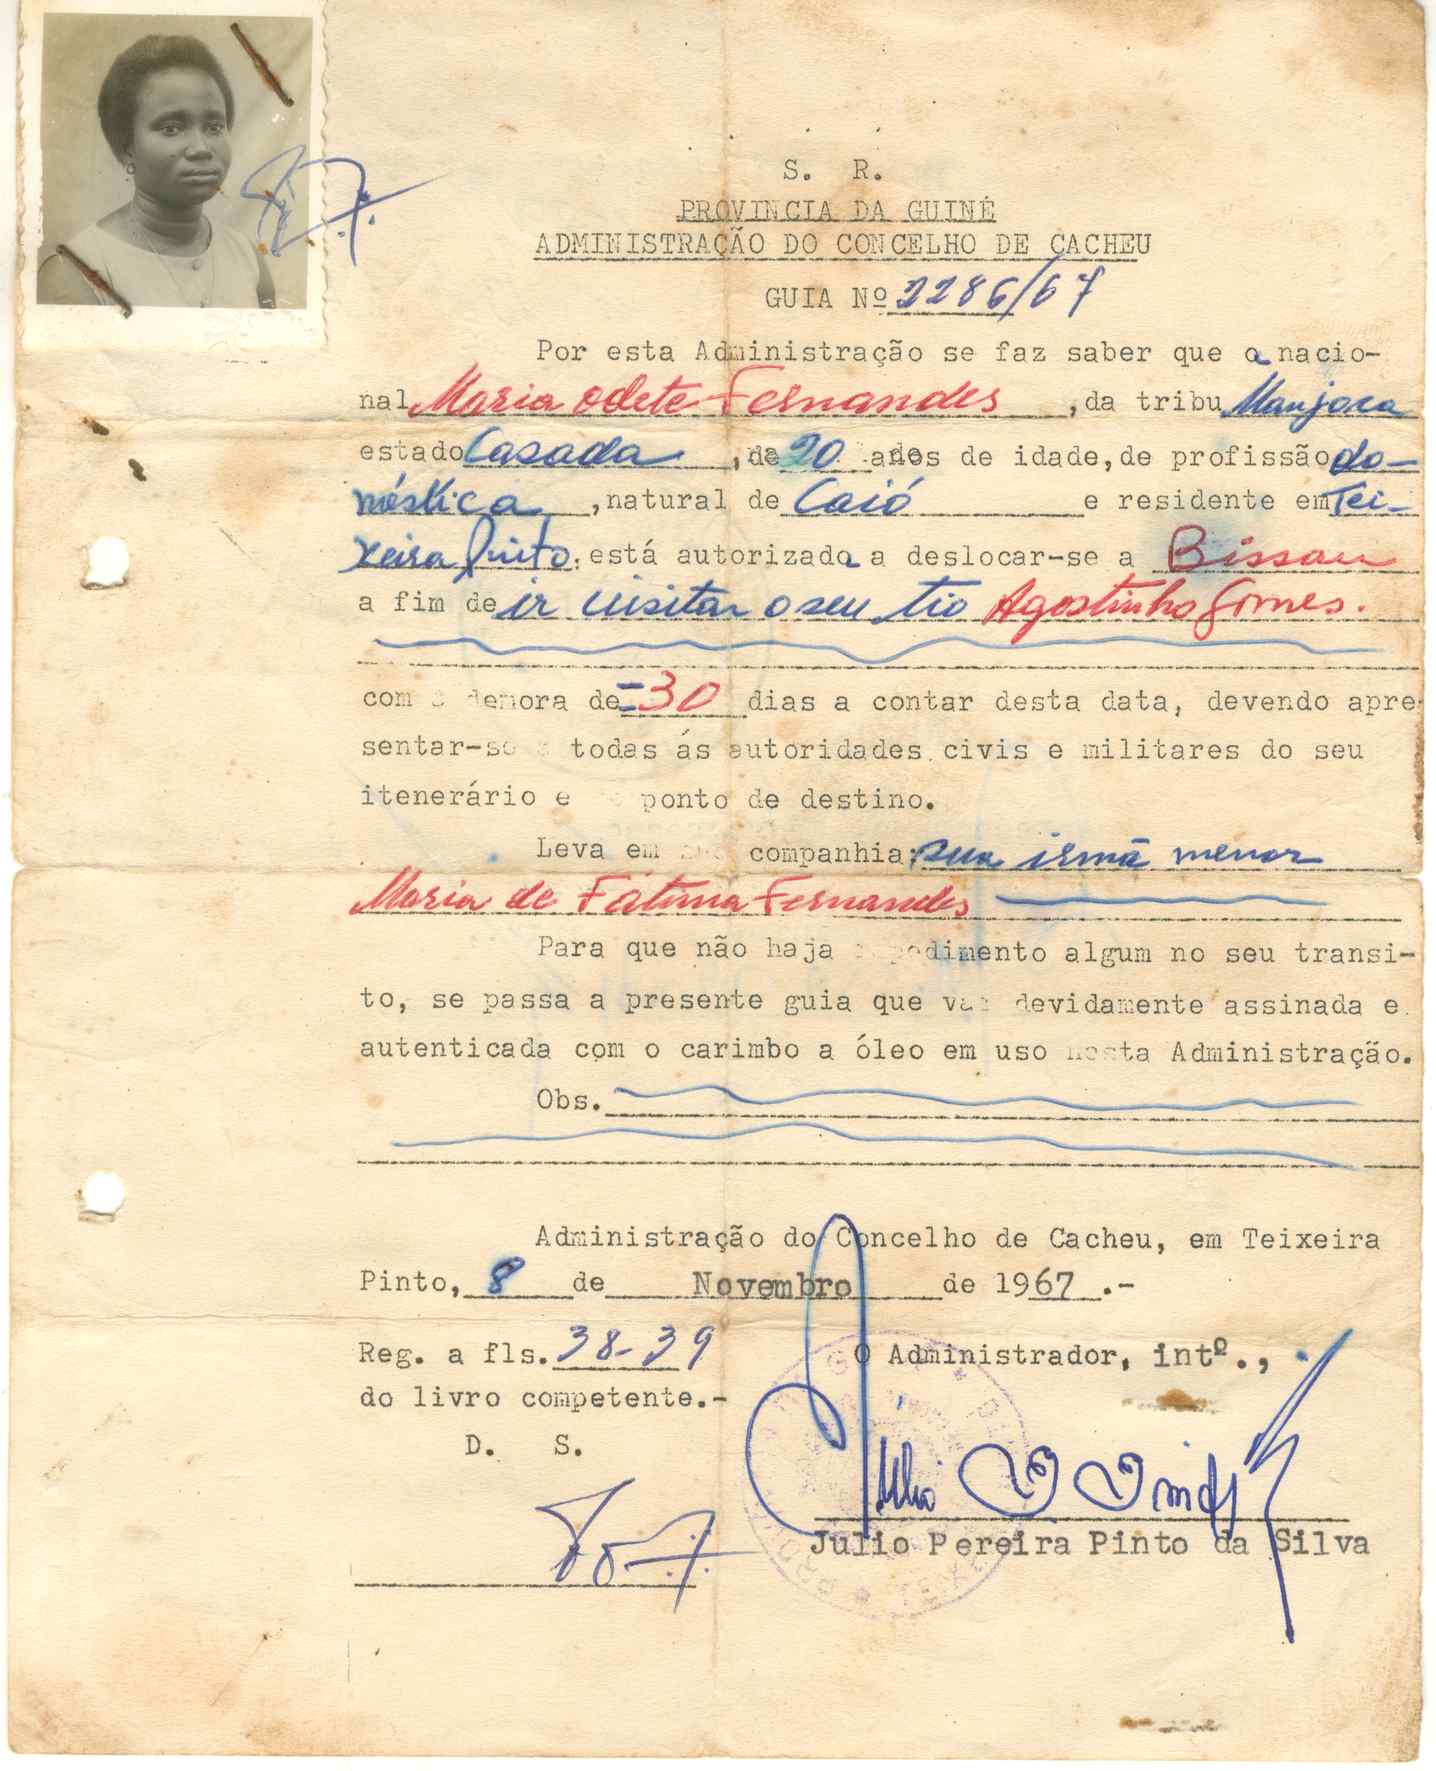 S. R.
PROVINCIA DA GUINÉ
ADMINISTRAÇÃO DO CONCELHO DE CACHEU
GUIA Nº 2286/67
Por esta Administração se faz saber que a nacio-
nal Maria Odete Fernandes, da tribu Manjaca
estado Casada, de 20 anos de idade, de profissão do-
méstica, natural de Caió e residente em Tei-
xeira Pinto. está autorizada a deslocar-se a Bissau
a fim de ir visitar o seu tio Agostinho Gomes.
com a demora de =30 dias a contar desta data, devendo apre-
sentar-se a todas ás autoridades civis e militares do seu
itenerário e ponto de destino.
Leva em sua companhia: sua irmã menor
Maria de Fátima Fernandes
Para que não haja impedimento algum no seu transi-
to, se passa a presente guia que vai devidamente assinada e
autenticada com o carimbo a óleo em uso nesta Administração.
Obs.
Administração do Concelho de Cacheu, em Teixeira
Pinto, 8 de Novembro de 1967.-
Reg. a fls. 38-39
O Administrador, intº.,
do livro competente.-
D. S.
Julio Pereira Pinto da Silva